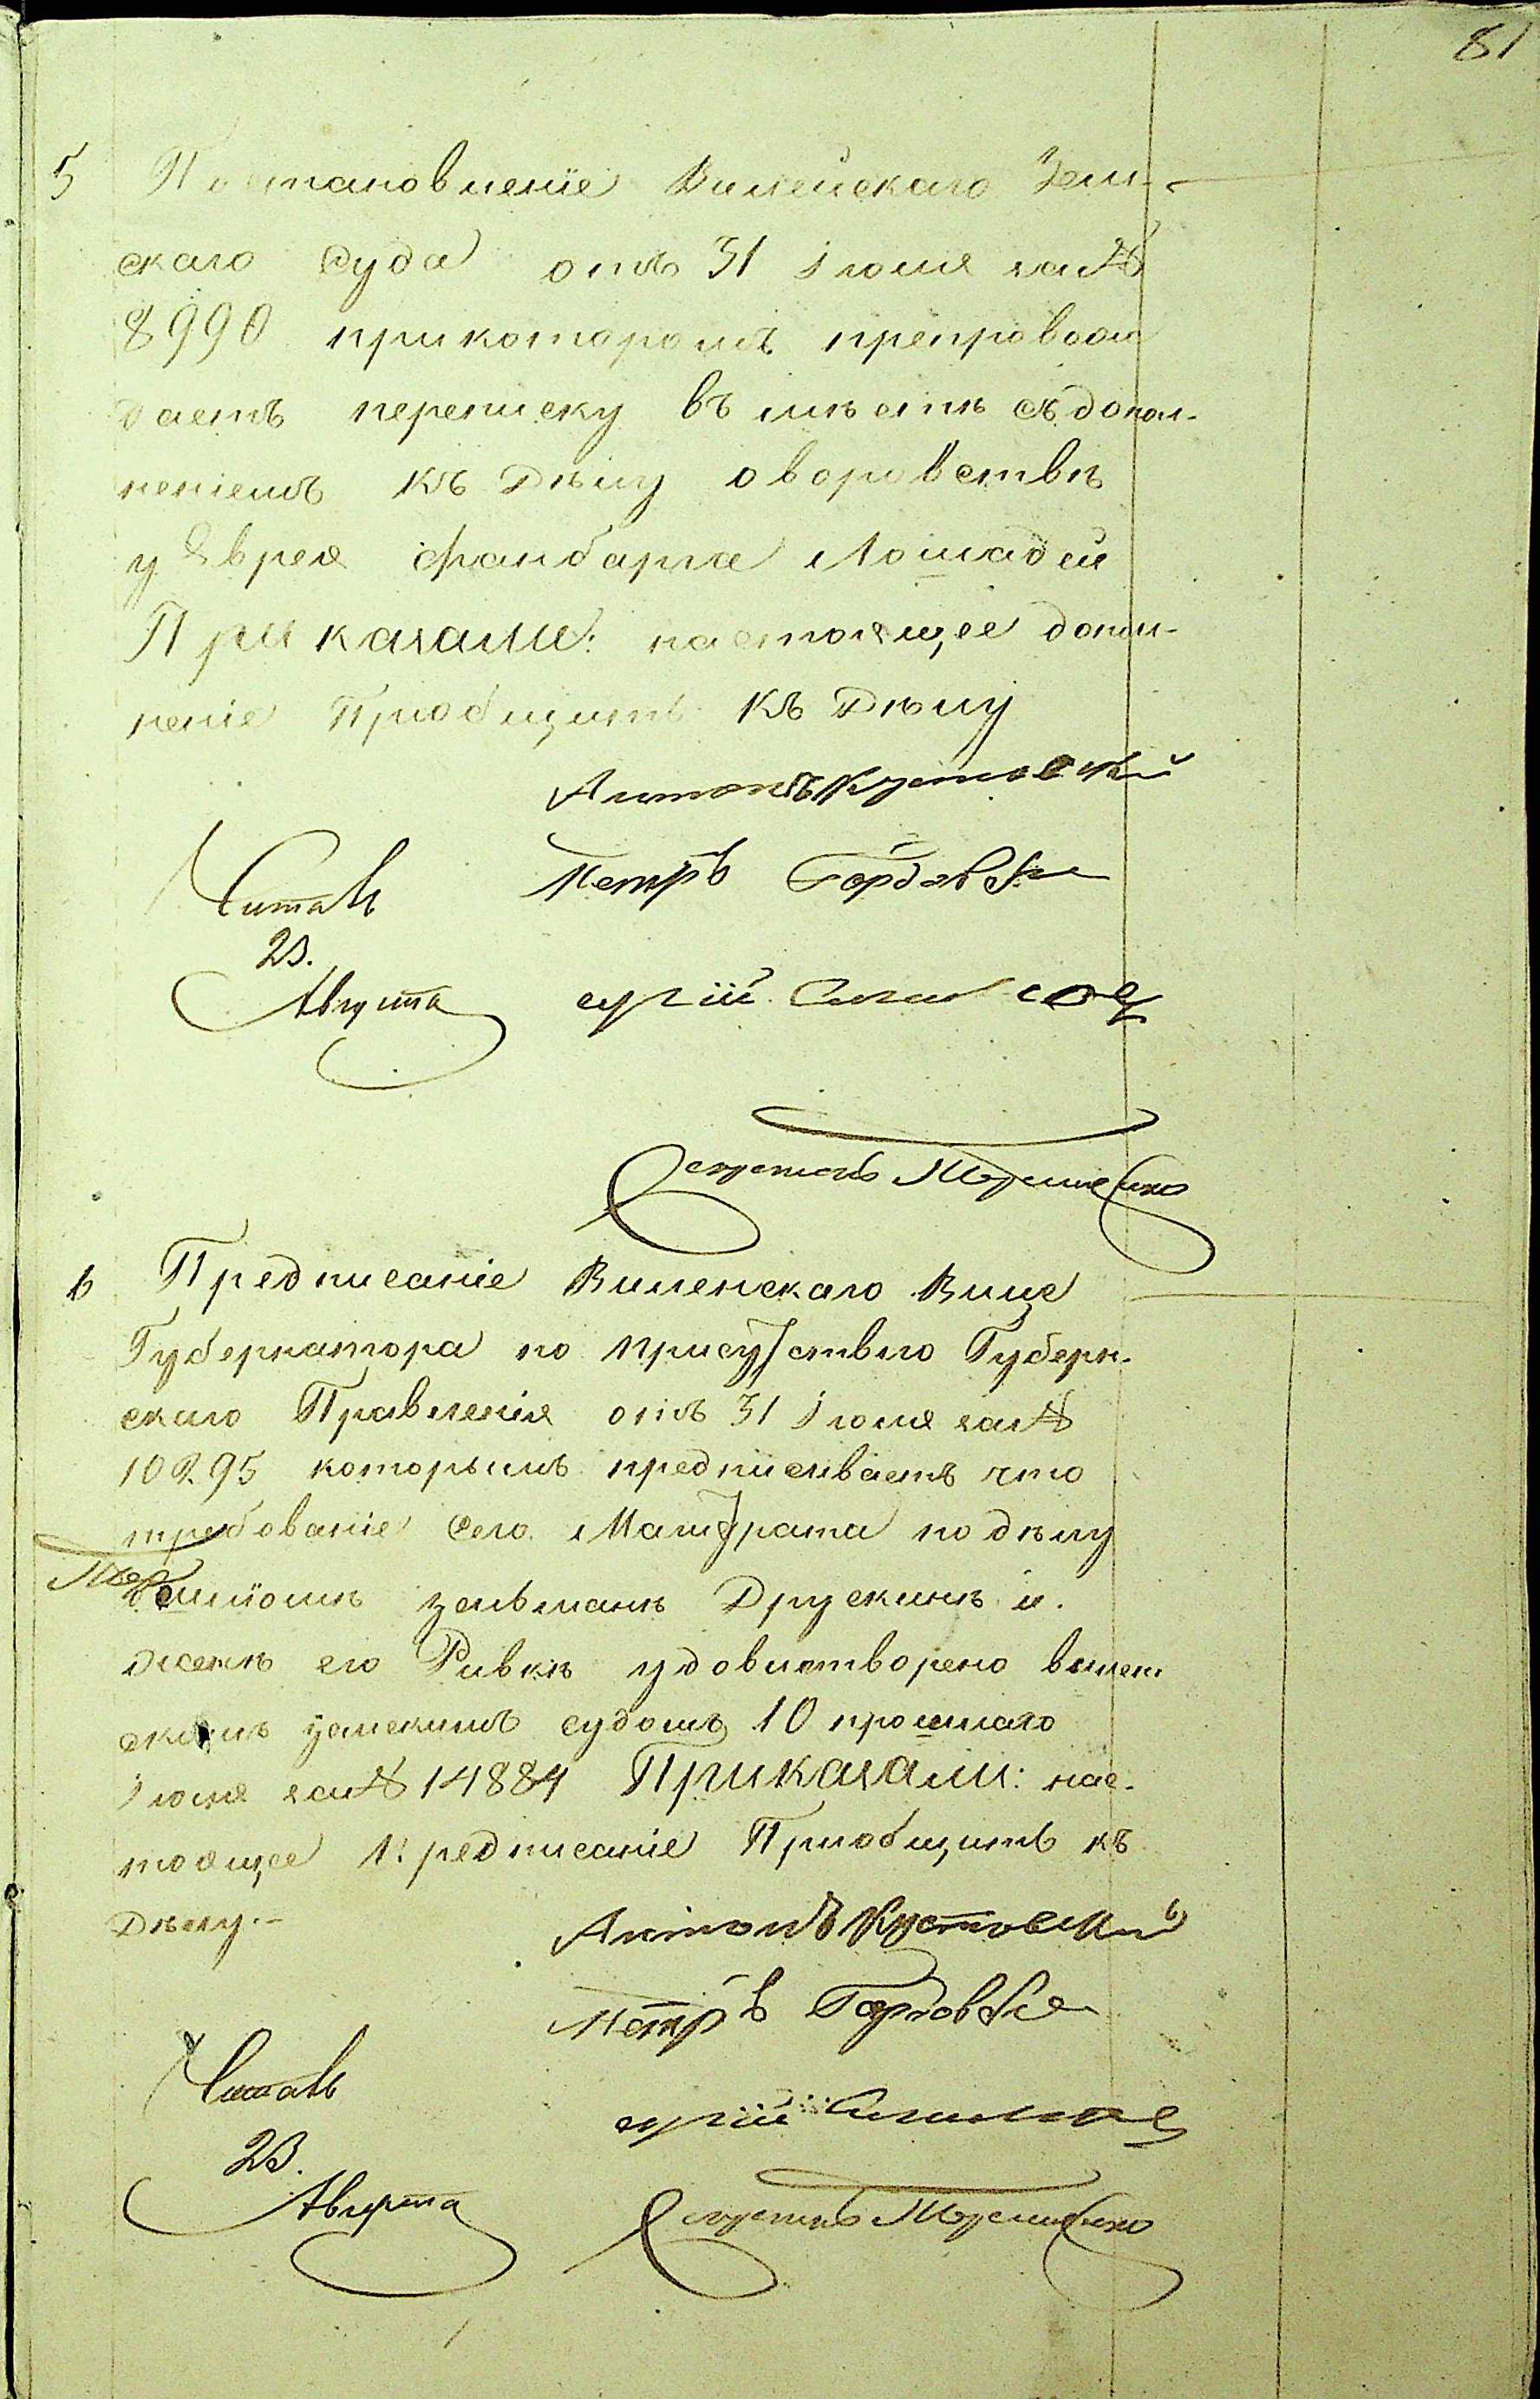 81
5 Постановленіе Вилейскаго Зем-
скаго Суда отъ 31 Іюля за №
8990 прикоторомъ препровож
даетъ переписку въ мѣстѣ съ допол-
неніемъ къ Дѣлу оворовствѣ
у Еврея Фанбарга Лошадей
Приказали: настоящее допол-
неніе Пріобщить къ Дѣлу
Антонъ Кустовскій
Читалъ Петръ Гордовскі
23.
Августа
6 Предписаніе Виленскаго Вице
Губернатора по присутствію Губерн-
скаго Правленія отъ 31 Іюля за №
10295 которымъ предписиваетъ что
требованіе Сего Магистрата по дѣлу
Зельманѣ Друскинѣ и
женѣ его Ривкѣ удовлетворено вилей
скимъ земскимъ судомъ 10 прошлаго
Іюля за № 14884 Приказали: нас-
тоящее Предписаніе Пріобщить къ
Дѣлу.-
Антонъ Кустовскій
Петръ Гордовскі
Читалъ
23.
Августа